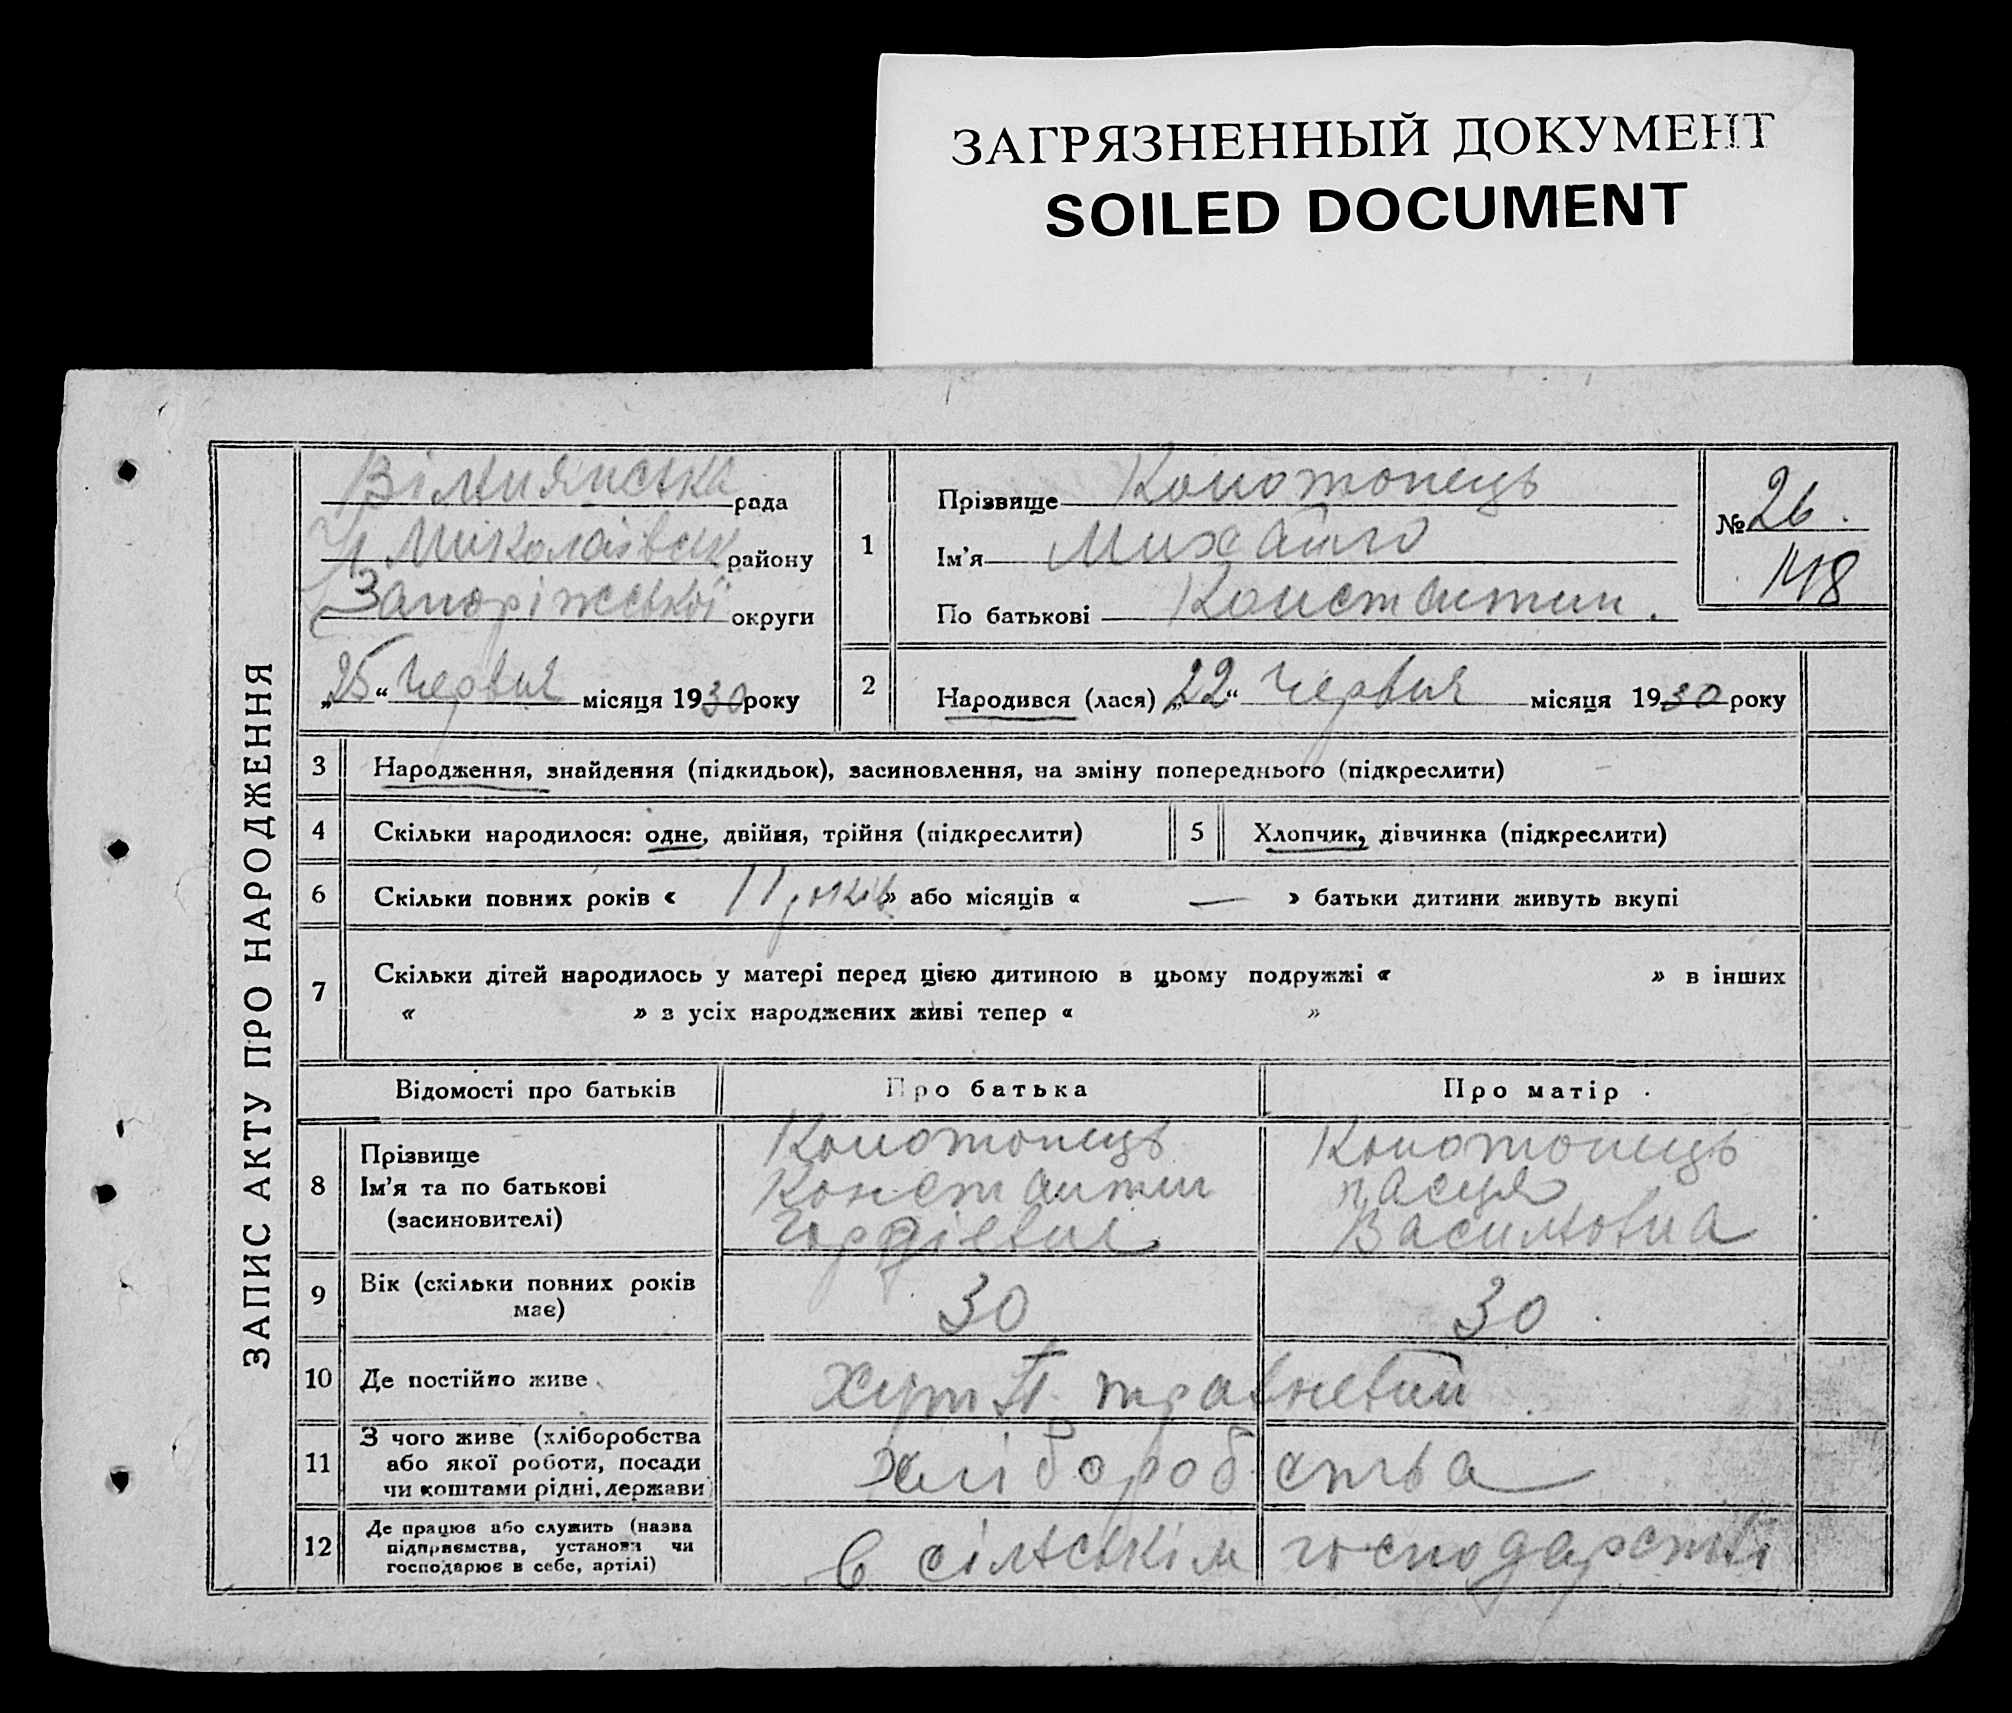 ЗАГРЯЗНЕННЫЙ ДОКУМЕНТ
SOILED DOCUMENT
ЗАПИС АКТУ ПРО НАРОДЖЕННЯ
Вільнянська рада
Миколаівськ району
Запоріжської округи
„25“ Червня місяця 1930 року
1
Прізвище Конотопець
Ім'я Михайло
По батькові Константин.
№ 26.
148
2
Народився (лася) „22“ Червня місяця 1930 року
3 Народження, знайдення (підкидьок), засиновлення, на зміну попереднього (підкреслити)
4 Скільки народилося: одне, двійня, трійня (підкреслити)
5 Хлопчик, дівчинка (підкреслити)
6 Скільки повних років « 11 років » або місяців « — » батьки дитини живуть вкупі
7 Скільки дітей народилось у матері перед цією дитиною в цьому подружжі « » в інших
« » з усіх народжених живі тепер « »
Відомості про батьків Про батька Про матір
8 Прізвище
Ім'я та по батькові
(засиновителі)
Конотопець
Константин
Гордієвич
Конотопець
Василовна
9 Вік (скільки повних років
має)
30
30
10 Де постійно живе
Хут. травневий
11 З чого живе (хліборобства
або якої роботи, посади
чи коштами рідні, держави)
хліборобства
12 Де працює або служить (назва
підприємства, установи чи
господарює в себе, артілі)
в сільськім господарстві